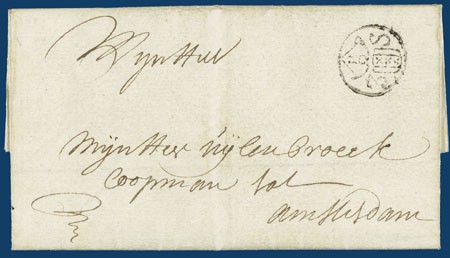 Mÿn Heer
Mÿn Heer Uÿlenbroeck
Coopman tot
Amsterdam